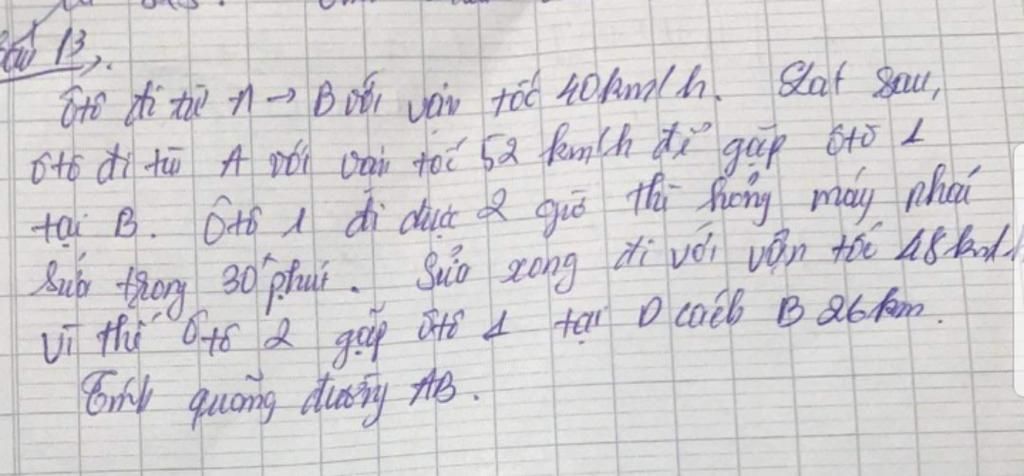 Bài 13,.
Ôtô đi từ A → B với vận tốc 40km/h. Lát sau,
ôtô đi từ A với vận tốc 52 km/h để gặp ôtô 1
tại B. Ôtô 1 đi được 2 giờ thì hỏng máy phải
sửa trong 30 phút. Sửa xong đi với vận tốc 48km/
vì thế ôtô 2 gặp ôtô 1 tại D cách B 26km.
Tính quãng đường AB.